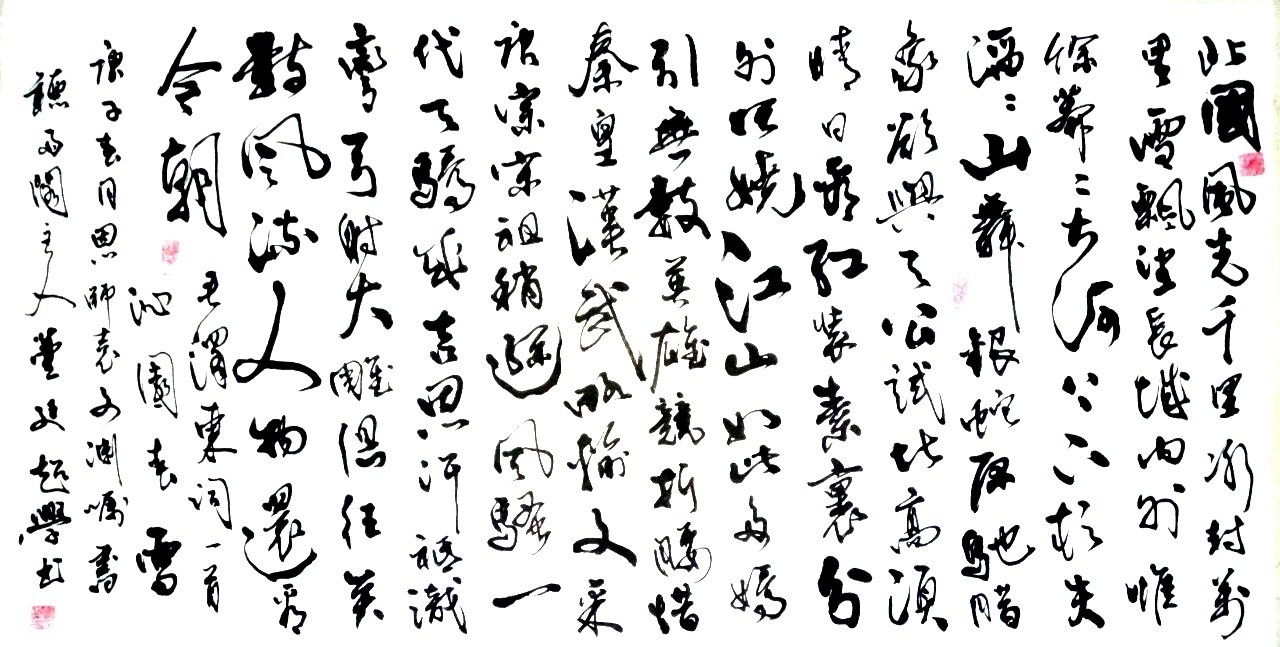 北國風光千里冰封萬
里雪飄望長城內外惟
餘莽〻大河上下頓失
滔〻山舞銀蛇原馳蜡
象欲與天公試比高須
晴日看紅裝素裹分
外妖嬈江山如此多嬌
引無數英雄競折腰惜
秦皇漢武略輸文采
唐宗宋祖稍遜风騷一
代天驕成吉思汗祗識
彎弓射大雕俱往矣
數风流人物還看
今朝
毛澤東詞一首
沁園春雪
庚子春月恩師袁文渊囑書
聽雨閣主人